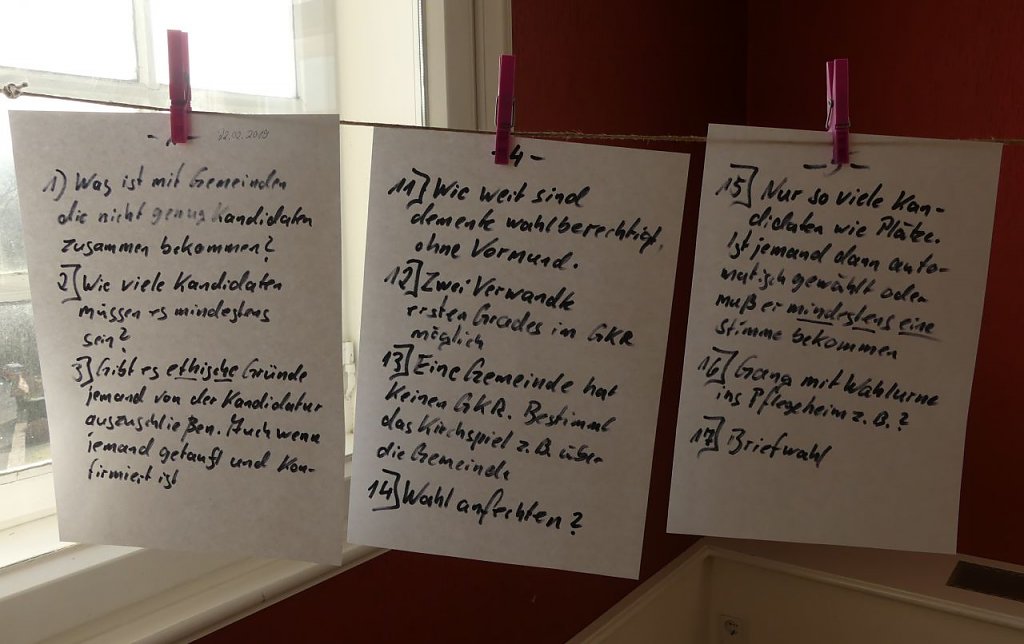 22.02.2019
1) Was ist mit Gemeinden
die nicht genug Kandidaten
zusammen bekommen?
2] Wie viele Kandidaten
müssen es mindestens
sein?
3] Gibt es ethische Gründe
jemand von der Kandidatur
auszuschließen. Auch wenn
jemand getauft und Kon-
firmiert ist
- 4 -
11] Wie weit sind
demente wahlberechtigt,
ohne Vormund.
12] Zwei Verwandte
ersten Grades im GKR
möglich
13] Eine Gemeinde hat
keinen GKR. Bestimmt
das Kirchspiel z.B. über
die Gemeinde
14] Wahl anfechten?
15] Nur so viele Kan-
didaten wie Plätze.
Ist jemand dann auto-
matisch gewählt oder
muß er mindestens eine
Stimme bekommen
16] Gang mit Wahlurne
ins Pflegeheim z.B.?
17] Briefwahl